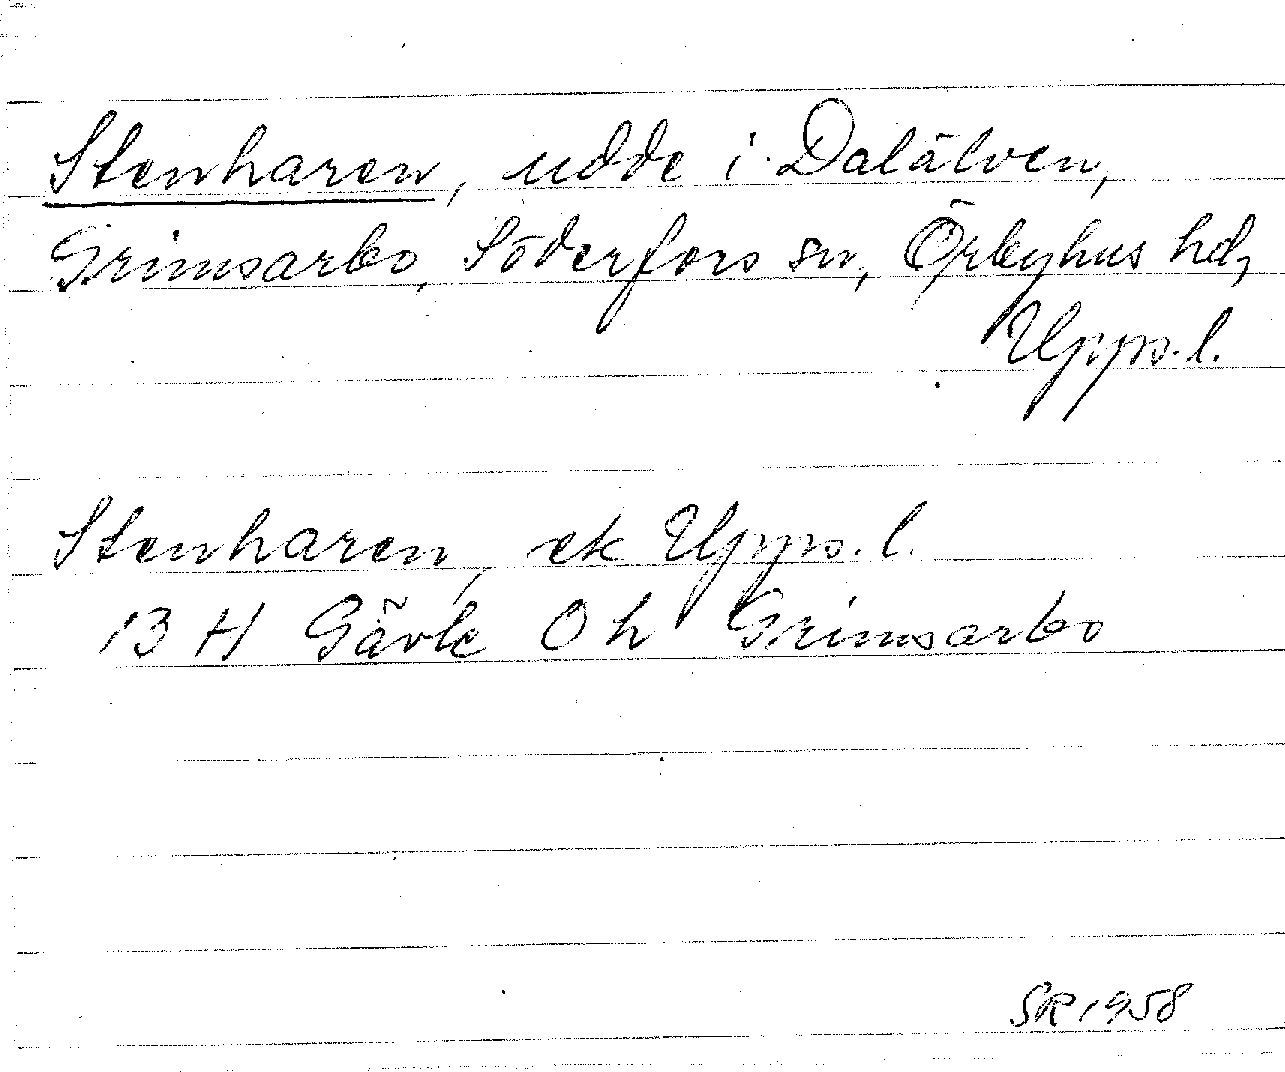 Stenharen, udde i Dalälven,
Grimsarbo, Söderfors sn, Örbyhus hd,
Upps. l.
Stenharen, ek Upps. l.
13 H Gävle 0 h Grimsarbo
SR 1958